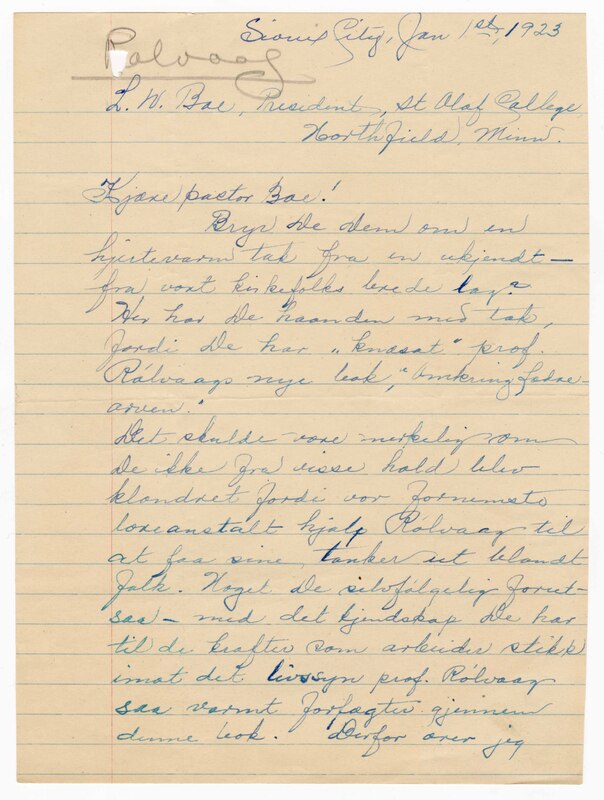 Sioux City, Jan 1st, 1923
Rolvaag
L. W. Boe, President, St Olaf College
Northfield, Minn.
Kjære pastor Boe!
Bryr De Dem om en
hjertevarm tak fra en ukjendt —
fra vort kirkefolks brede lag?
Her har De haanden med tak,
fordi De har „knæsat" prof.
Rólvaags nye bok, „Omkring fædre-
arven."
Det skulde være merkelig om
De ikke fra visse hold blev
klandret fordi vor fornemste
læreanstalt hjalp Rólvaag til
at faa sine tanker ut blandt
folk. Noget De selvfólgelig forut-
saa — med det kjendskap De har
til de krafter som arbeider stikk
imot det livssyn prof. Rólvaag
saa varmt forfægter gjennem
denne bok. Derfor ærer jeg